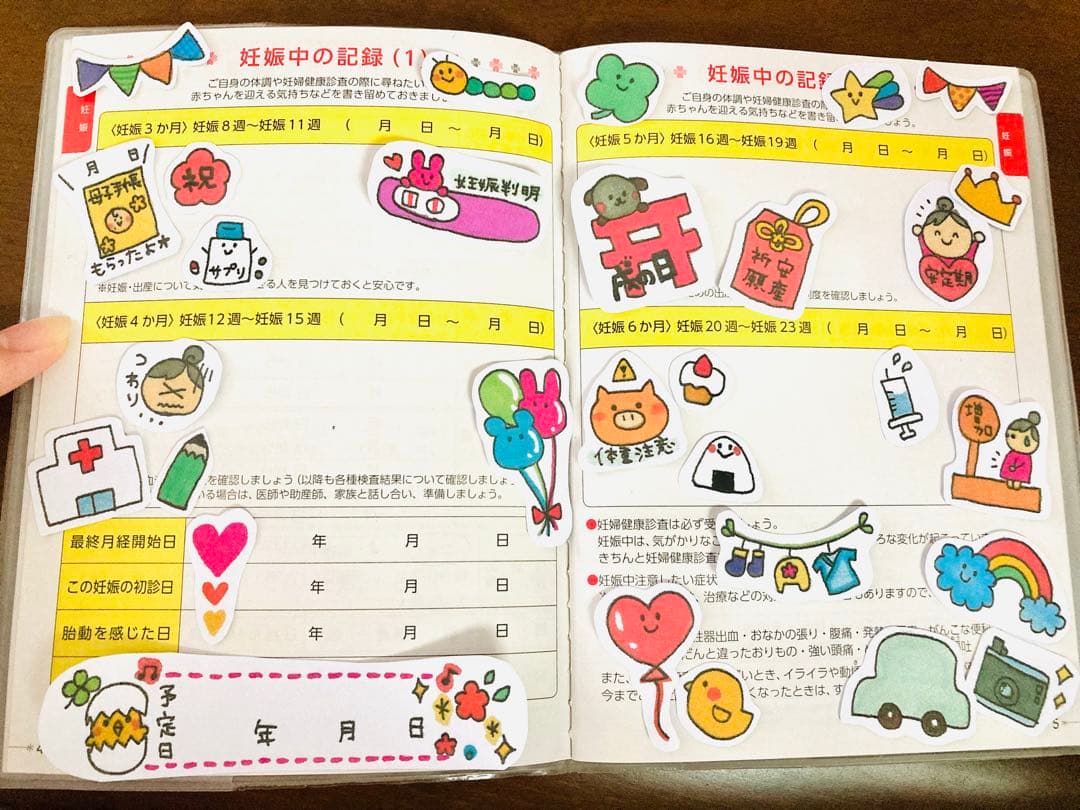 妊娠中の記録(1)
ご自身の体調や妊婦健康診査の際に尋ねたい
赤ちゃんを迎える気持ちなどを書き留めておきまし
妊娠
〈妊娠3か月〉妊娠8週～妊娠11週 ( 月 日 ～ 月 日)
月 日
母子手帳
もらったよ
祝
サプリ
妊娠判明
※妊娠・出産について
る人を見つけておくと安心です。
〈妊娠4か月〉妊娠12週～妊娠15週 ( 月 日 ～ 月 日)
つわり...
を確認しましょう(以降も各種検査結果について確認しましょ
いる場合は、医師や助産師、家族と話し合い、準備しましょう。
最終月経開始日 年 月 日
この妊娠の初診日 年 月 日
胎動を感じた日 年 月 日
予定日 年 月 日
4
妊娠中の記録
ご自身の体調や妊婦健康診査の際
赤ちゃんを迎える気持ちなどを書き留
しょう。
妊娠
〈妊娠5か月〉妊娠16週～妊娠19週 ( 月 日 ～ 月 日)
戌の日
安産
祈願
安定期
制度を確認しましょう。
〈妊娠6か月〉妊娠20週～妊娠23週 ( 月 日 ～ 月 日)
!
体重注意
増加
●妊婦健康診査は必ず受
しょう。
妊娠中は、気がかりなこ
ろな変化が起こってい
きちんと妊婦健康診査
●妊娠中注意したい症状
、治療などの対
もありますので、
性器出血・おなかの張り・腹痛・発熱
がんこな便秘
だんと違ったおりもの・強い頭痛・
また、
いとき、イライラや動悸
今まで
くなったときは、す
5